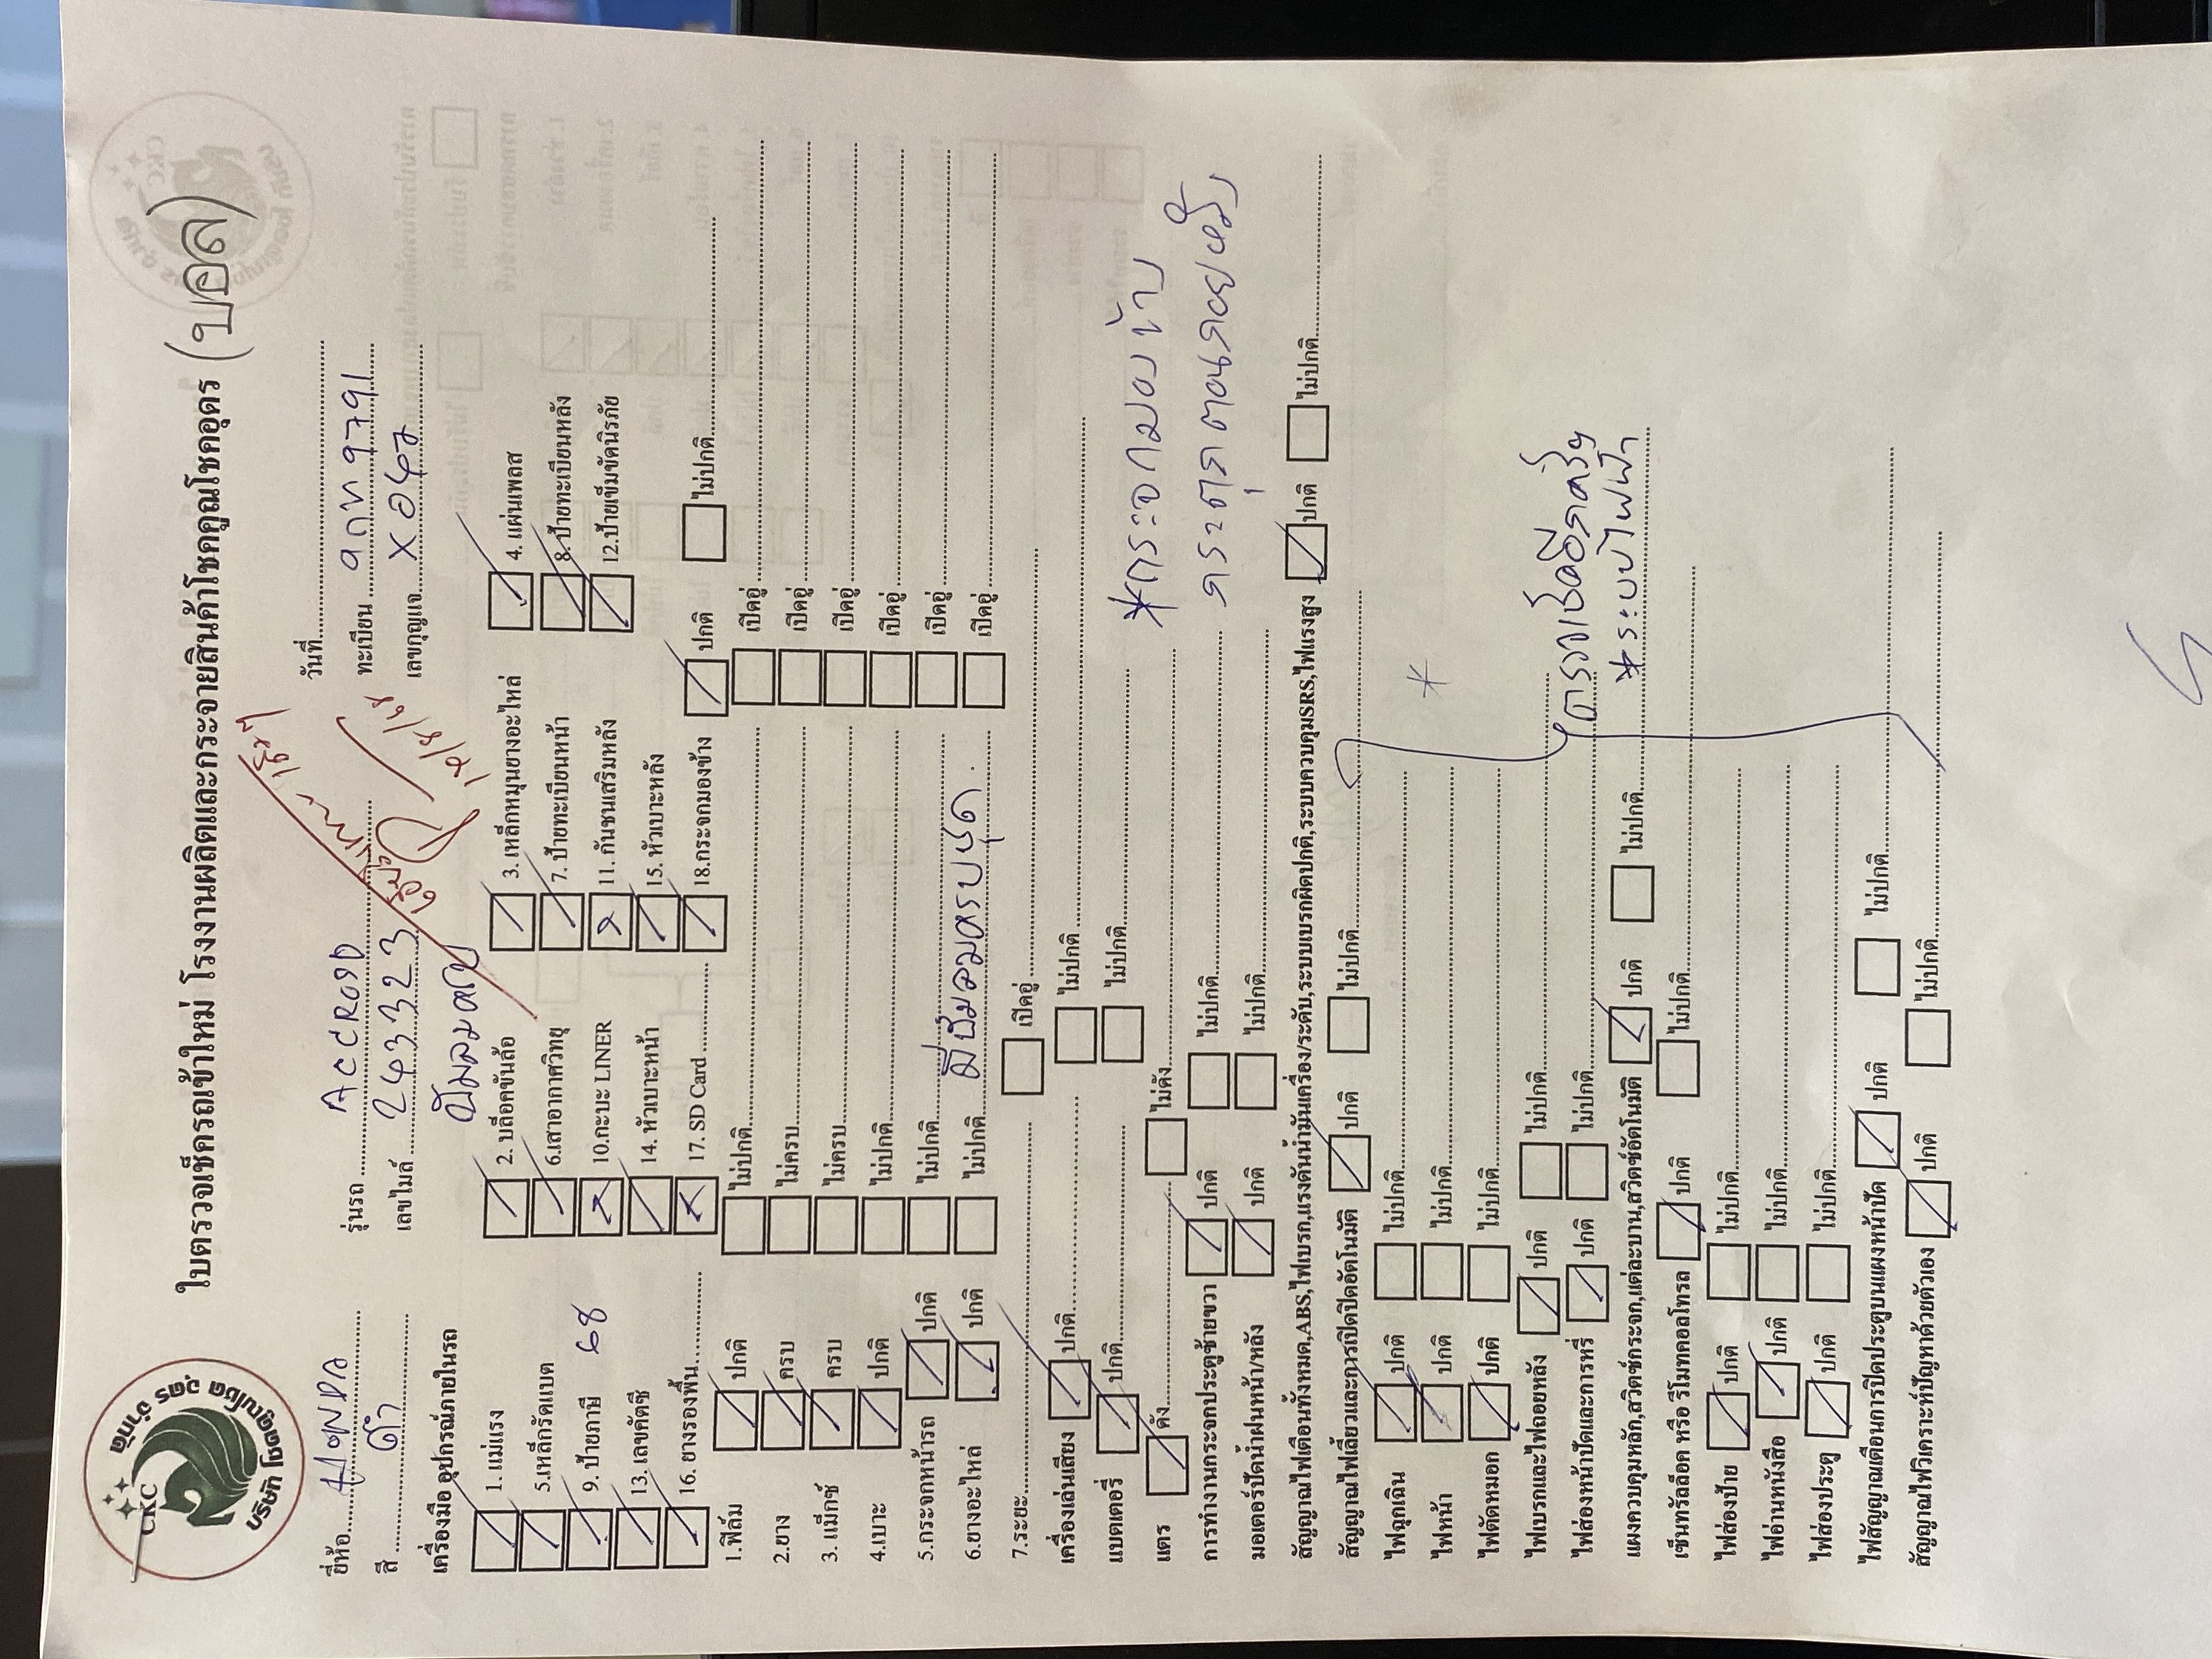 CKC
บริษัท คูณโชค อุดร จำกัด
ใบตรวจเช็ครถเข้าใหม่ โรงงานผลิตและกระจายสินค้าโชคคูณโชคอุดร (บอล)
วันที่
ยี่ห้อ HONDA รุ่นรถ ACCROD ทะเบียน 9791
สี ดำ เลขไมล์ 243323 เลขกุญแจ
12/8/68
ปั๊มลมครบ
เครื่องมือ อุปกรณ์ภายในรถ
1. แม่แรง 2. บล็อคขันล้อ 3. เหล็กหมุนยางอะไหล่ 4. แผ่นเพลส
5.เหล็กรัดเบต 6.เสาอากาศวิทยุ 7. ป้ายทะเบียนหน้า 8.ป้ายทะเบียนหลัง
9. ป้ายภาษี 68 10.กะบะ LINER 11. กันชนเสริมหลัง 12.ป้ายเข็มขัดนิรภัย
13. เลขคัตซี 14. หัวเบาะหน้า 15. หัวเบาะหลัง
16. ยางรองพื้น 17. SD Card 18.กระจกมองข้าง ปกติ ไม่ปกติ
1.ฟิล์ม ปกติ ไม่ปกติ เปิดอู่
2.ยาง ครบ ไม่ครบ เปิดอู่
3. แม็กซ์ ครบ ไม่ครบ เปิดอู่
4.เบาะ ปกติ ไม่ปกติ เปิดอู่
5.กระจกหน้ารถ ปกติ ไม่ปกติ เปิดอู่
6.ยางอะไหล่ ปกติ ไม่ปกติ มีปั๊มลมครบชุด. เปิดอู่
7.ระยะ เปิดอู่
เครื่องเล่นเสียง ปกติ ไม่ปกติ
แบตเตอรี่ ปกติ ไม่ปกติ
แตร ดัง ไม่ดัง *กระจกมองข้าง
การทำงานกระจกประตูซ้ายขวา ปกติ ไม่ปกติ กระตุกตอนถอยหลัง
มอเตอร์ปัดน้ำฝนหน้า/หลัง ปกติ ไม่ปกติ
สัญญาณไฟเตือนทั้งหมด,ABS,ไฟเบรก,แรงดันน้ำมันเครื่อง/ระดับ,ระบบเบรกผิดปกติ,ระบบควบคุมSRS,ไฟแรงสูง ปกติ ไม่ปกติ
สัญญาณไฟเลี้ยวและการเปิดปิดอัตโนมัติ ปกติ ไม่ปกติ
ไฟฉุกเฉิน ปกติ ไม่ปกติ
ไฟหน้า ปกติ ไม่ปกติ *
ไฟตัดหมอก ปกติ ไม่ปกติ
ไฟเบรกและไฟถอยหลัง ปกติ ไม่ปกติ
ไฟส่องหน้าปัดและการหรี่ ปกติ ไม่ปกติ ตรวจเช็คอีกครั้ง
แผงควบคุมหลัก,สวิตช์กระจก,แต่ละบาน,สวิตช์อัตโนมัติ ปกติ ไม่ปกติ *ระบบไฟฟ้า
เซ็นทรัลล็อค หรือ รีโมทคอลโทรล ปกติ ไม่ปกติ
ไฟส่องป้าย ปกติ ไม่ปกติ
ไฟอ่านหนังสือ ปกติ ไม่ปกติ
ไฟส่องประตู ปกติ ไม่ปกติ
ไฟสัญญาณเตือนการปิดประตูบนแผงหน้าปัด ปกติ ไม่ปกติ
สัญญาณไฟวิเคราะห์ปัญหาด้วยตัวเอง ปกติ ไม่ปกติ